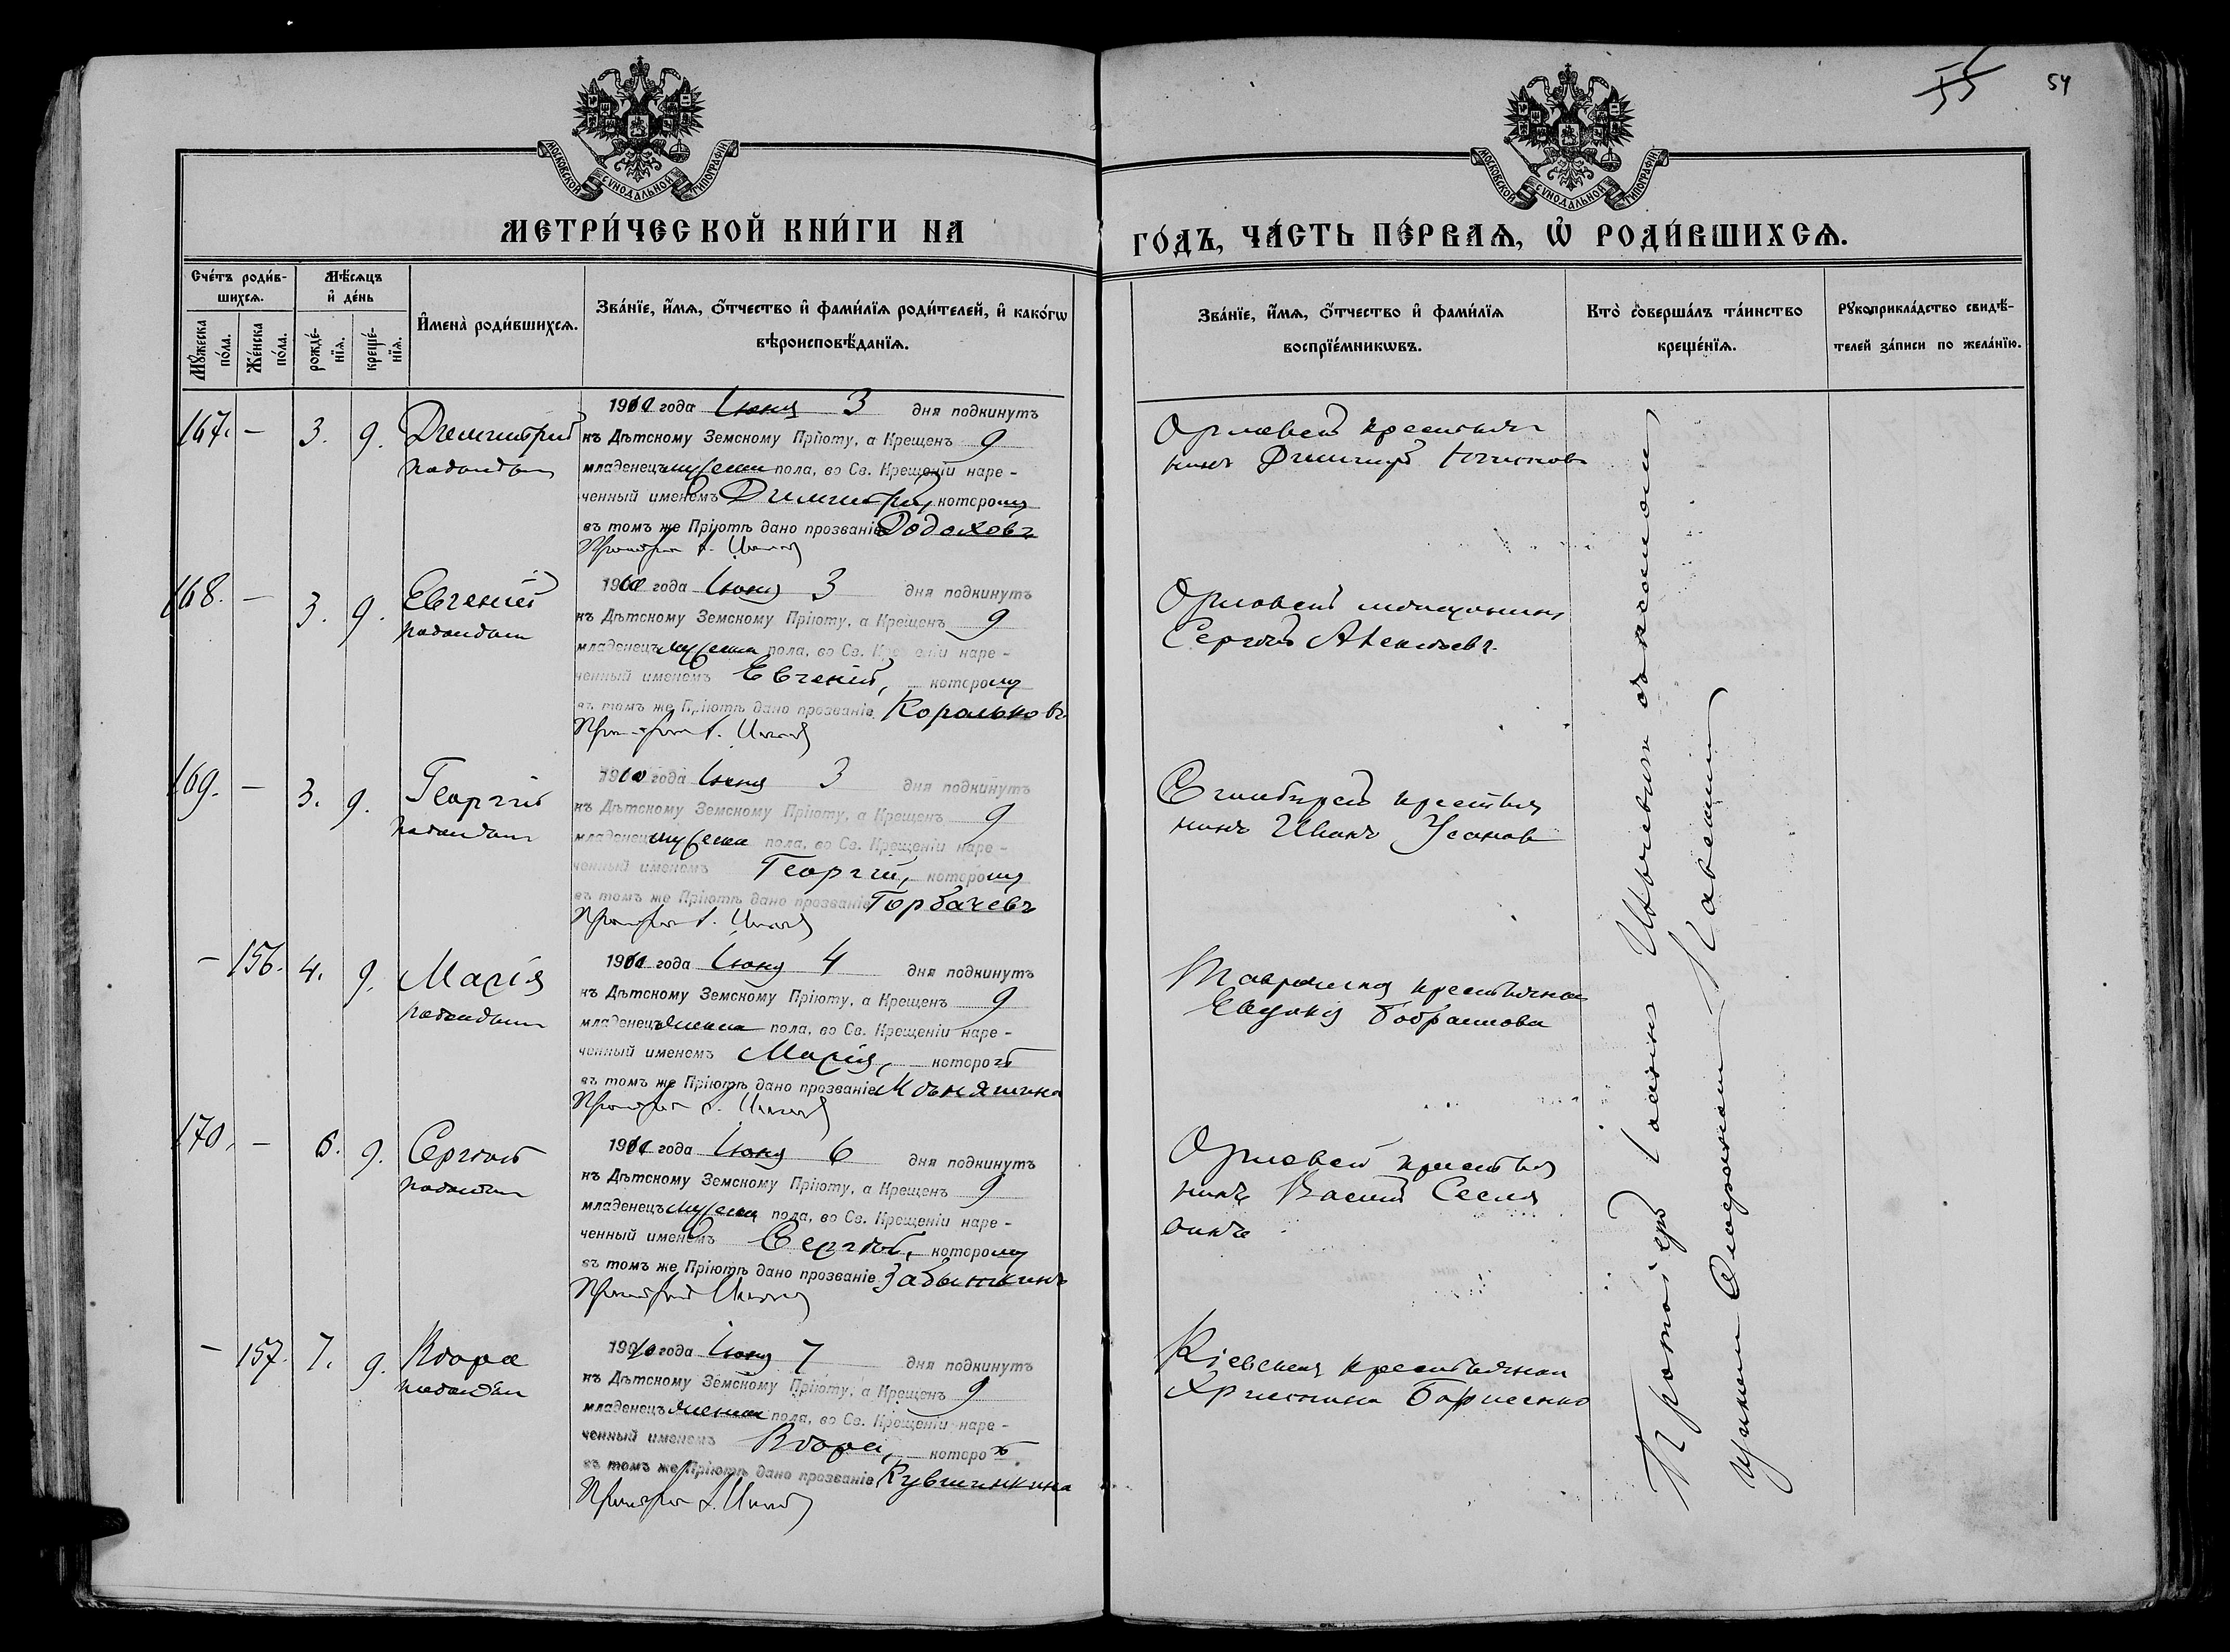 55 54
МОСКОВСКОЙ СѴНОДАЛЬНОЙ ТИПОГРАФІИ
МОСКОВСКОЙ СѴНОДАЛЬНОЙ ТИПОГРАФІИ
МЕТРИ́ЧЕСКОЙ КНИ́ГИ НА
ГО́ДЪ, ЧА́СТЬ ПЕ́РВАѦ, Ѡ҆ РОДИ́ВШИХСѦ.
Сче́тъ роди́в-
шихсѧ.
Мꙋ́жеска по́ла.
Же́нска по́ла.
Мѣ́сѧцъ
и҆ де́нь
рожде́-
нїѧ.
креще́-
нїѧ.
И҆мена̀ роди́вшихсѧ.
Зва́нїе, и҆́мѧ, ѻ҆́тчество и҆ фами́лїѧ роди́телей, и҆ како́гѡ
вѣроисповѣ́данїѧ.
Зва́нїе, и҆́мѧ, ѻ҆́тчество и҆ фами́лїѧ
воспрїе́мникѡвъ.
Кто̀ соверша́лъ та́инство
креще́нїѧ.
Рꙋкоприкла́дство свидѣ́-
телей за́писи по жела́нїю.
167. — 3. 9. Димитрій
1910 года Іюня 3 дня подкинутъ
къ Дѣтскому Земскому Пріюту, а Крещенъ 9
младенецъ мужеска пола, во Св. Крещеніи наре-
ченный именемъ Димитрій, которому
въ томъ же Пріютѣ дано прозваніе Додоховъ
Орловскій крестья
нинъ Димитрій
168. — 3. 9. Евгеній
1910 года Іюня 3 дня подкинутъ
къ Дѣтскому Земскому Пріюту, а Крещенъ 9
младенецъ мужеска пола, во Св. Крещеніи наре-
ченный именемъ Евгеній, которому
въ томъ же Пріютѣ дано прозваніе Корольковъ
Орловскій мѣщанинъ
Сергѣй Алексѣевъ.
169. — 3. 9. Георгій
1910 года Іюня 3 дня подкинутъ
къ Дѣтскому Земскому Пріюту, а Крещенъ 9
младенецъ мужеска пола, во Св. Крещеніи наре-
ченный именемъ Георгій, которому
въ томъ же Пріютѣ дано прозваніе Горбачевъ
Симбирскій крестья
нинъ Иванъ Усановъ
— 156. 4. 9. Марія
1910 года Іюня 4 дня подкинутъ
къ Дѣтскому Земскому Пріюту, а Крещенъ 9
младенецъ женска пола, во Св. Крещеніи наре-
ченный именемъ Марія, которой
въ томъ же Пріютѣ дано прозваніе
Таврическая крестьянка
Евдокія
170. — 6. 9. Сергѣй
1910 года Іюня 6 дня подкинутъ
къ Дѣтскому Земскому Пріюту, а Крещенъ 9
младенецъ мужеска пола, во Св. Крещеніи наре-
ченный именемъ Сергѣй, которому
въ томъ же Пріютѣ дано прозваніе Забышкинъ
Орловскій крестья
нинъ
— 157. 7. 9. Вѣра
1910 года Іюня 7 дня подкинутъ
къ Дѣтскому Земскому Пріюту, а Крещенъ 9
младенецъ женска пола, во Св. Крещеніи наре-
ченный именемъ Вѣра, которой
въ томъ же Пріютѣ дано прозваніе Кувшинкина
Кіевская крестьянка
Христина Борисенко
Протоіерей Іоаннъ